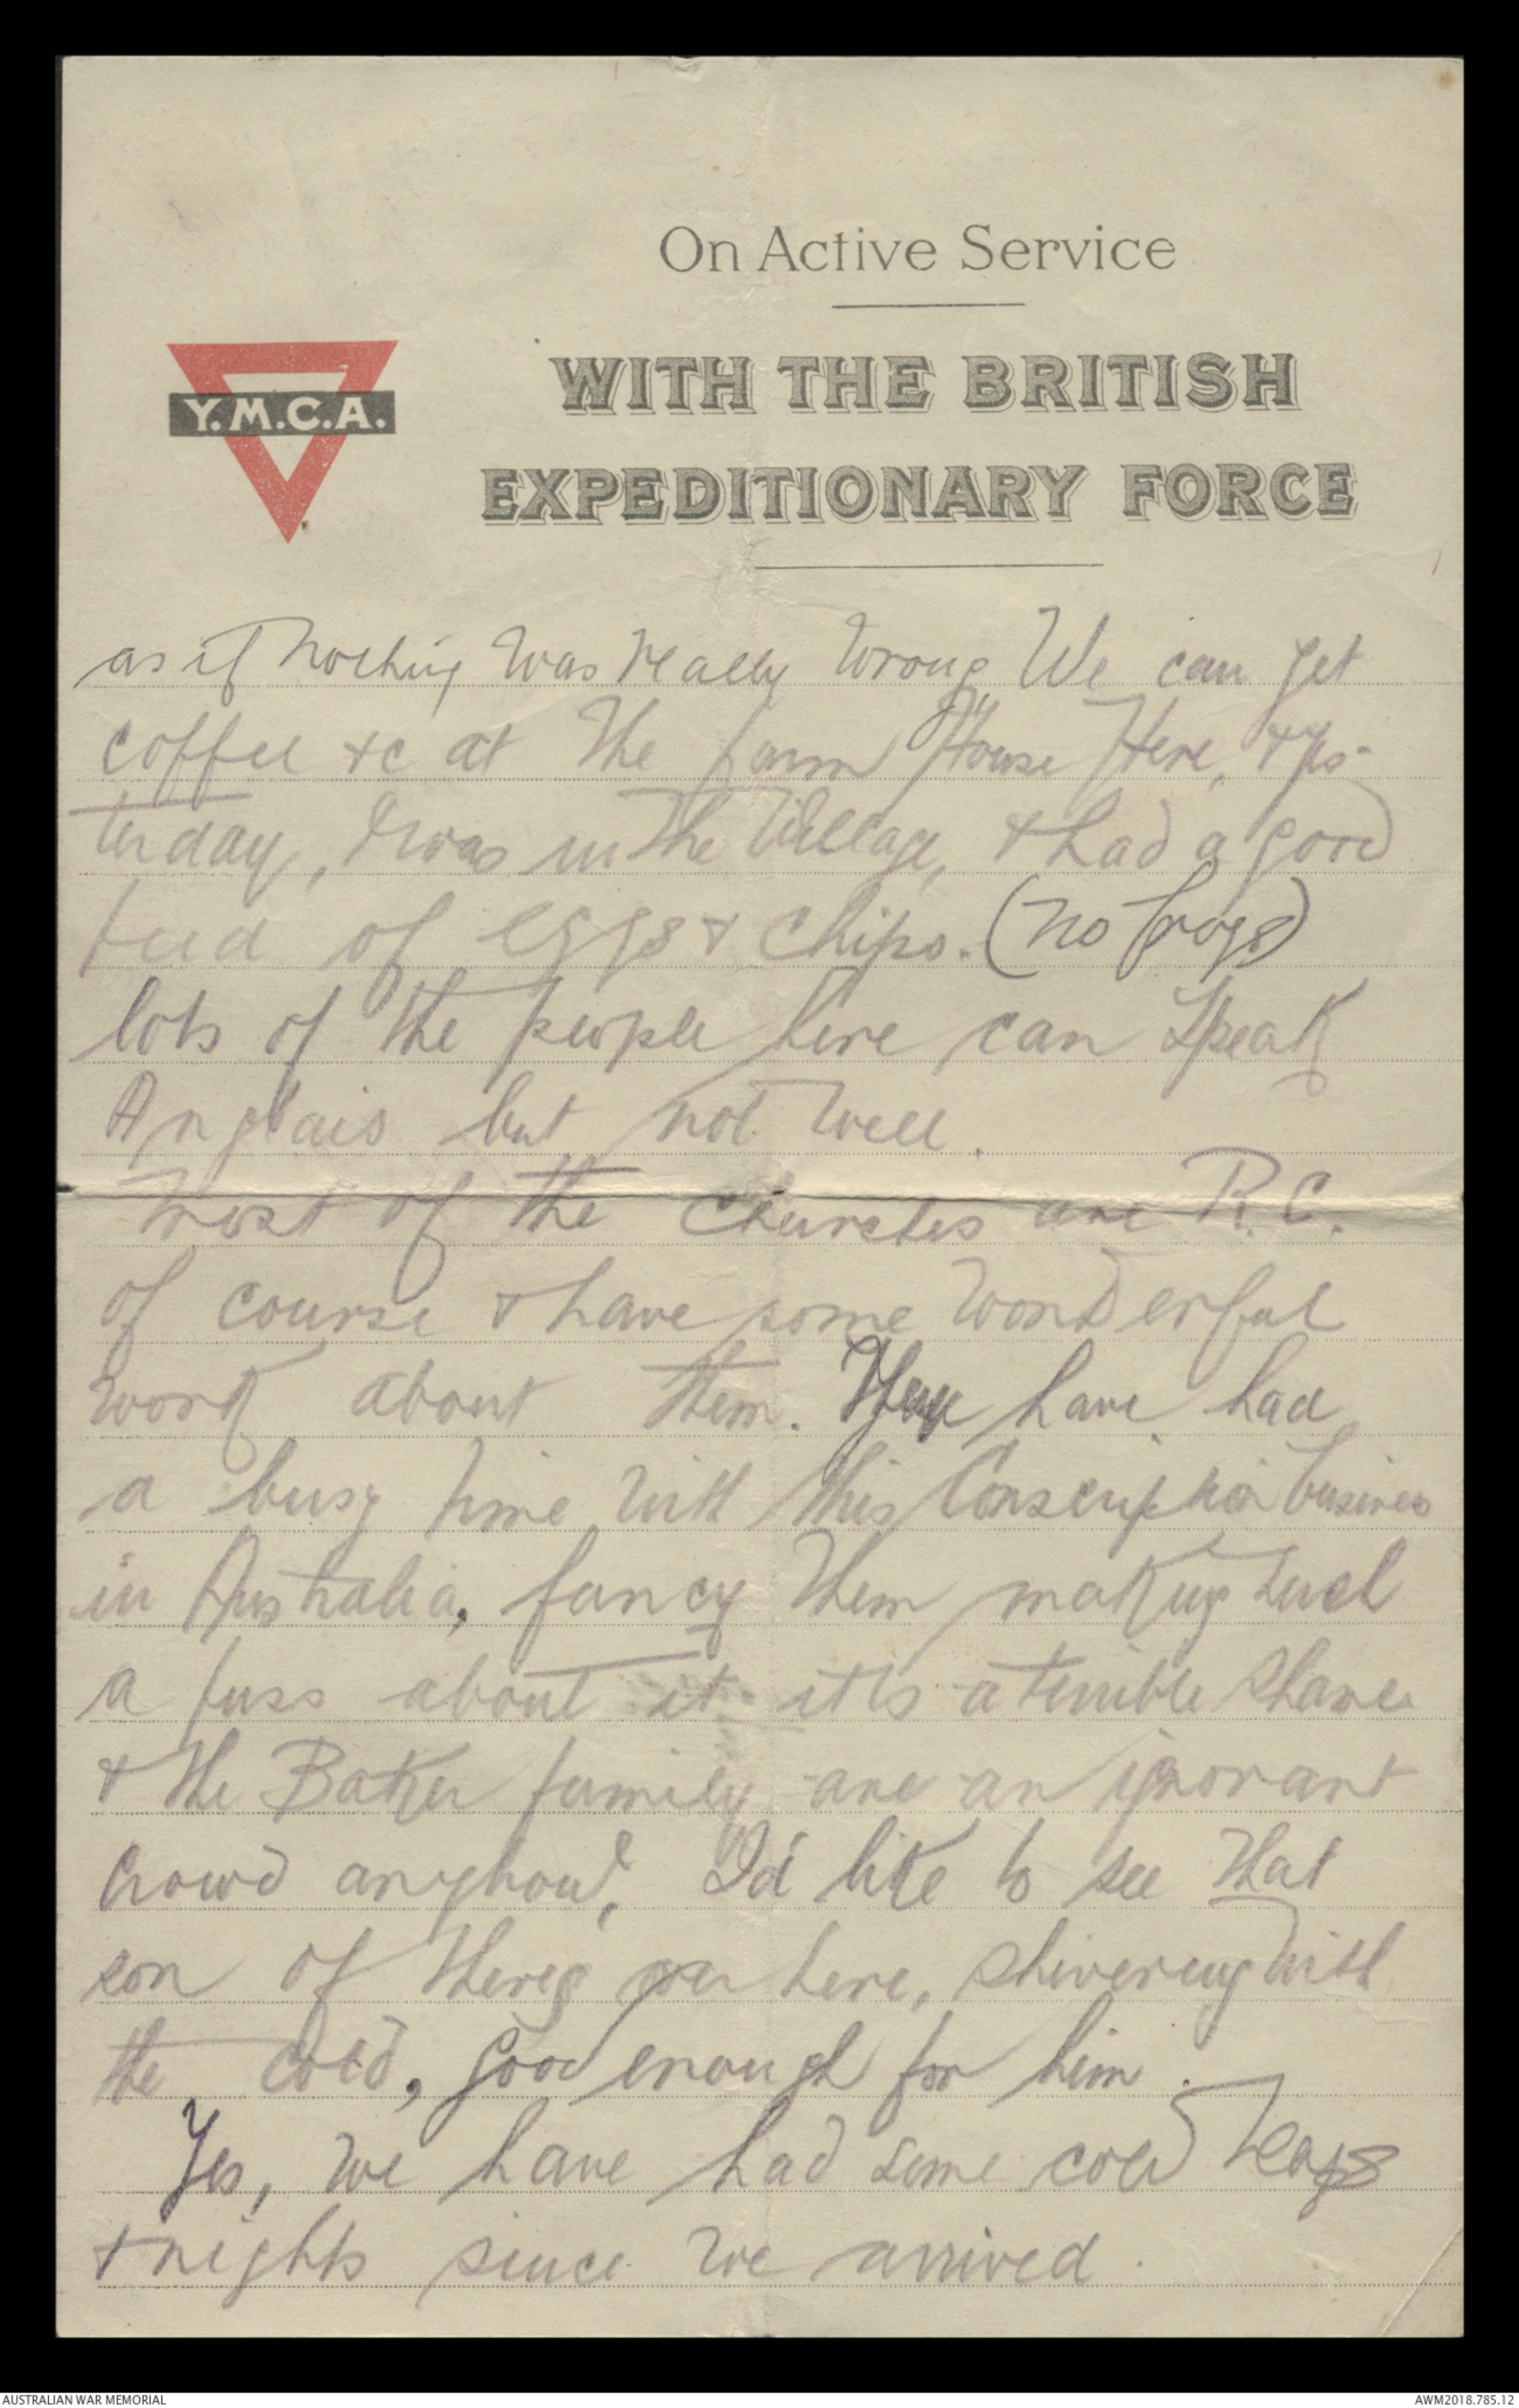 On Active Service
WITH THE BRITISH
EXPEDITIONARY FORCE
Y.M.C.A.
as if nothing was really wrong We can get
coffee &c at the farm House Here, & yes-
terday, I was in the Village, & had a good
feed of eggs & chips. (no frogs)
lots of the people here can speak
Anglais but not well.
Most of the Churches are R.C.
of course & have some wonderful
work about them. You have had
a busy time with this Conscription business
in Australia, fancy them making such
a fuss about it it is a terrible shame
& the Baker family are an ignorant
crowd anyhow, I'd like to see that
son of theirs over here, shivering with
the cold, good enough for him.
Yes, we have had some cold days
& nights since we arrived.
AUSTRALIAN WAR MEMORIAL
AWM2018.785.12